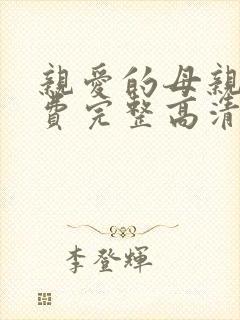 親愛的母親
費完整高清
李登輝